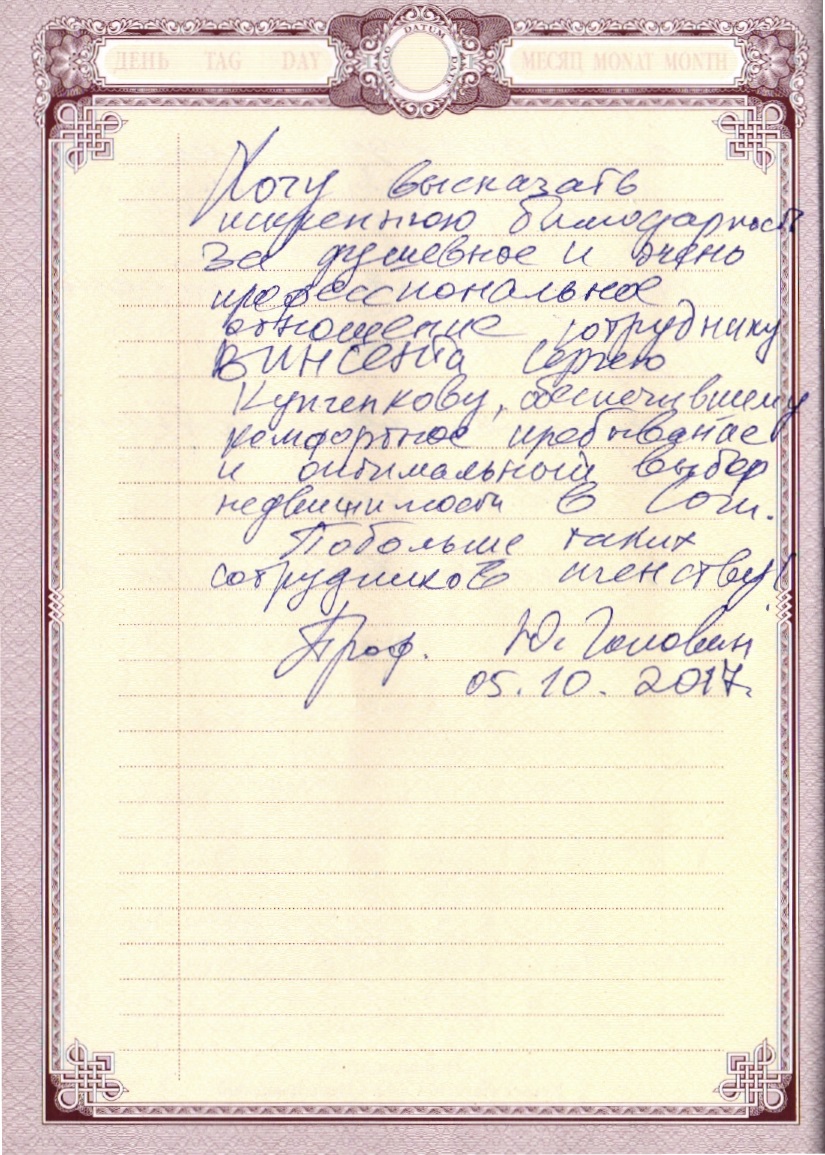 ДЕНЬ TAG DAY
ЧИСЛО DATUM DATE
МЕСЯЦ MONAT MONTH
Хочу высказать
искреннюю благодарность
за душевное и очень
профессиональное
отношение сотруднику
ВИНСЕНТа Сергею
обеспечившему
комфортное пребывание
и оптимальный выбор
недвижимости в Сочи.
Побольше таких
сотрудников агенству!
Проф. Ю. Головин
05.10.2017.